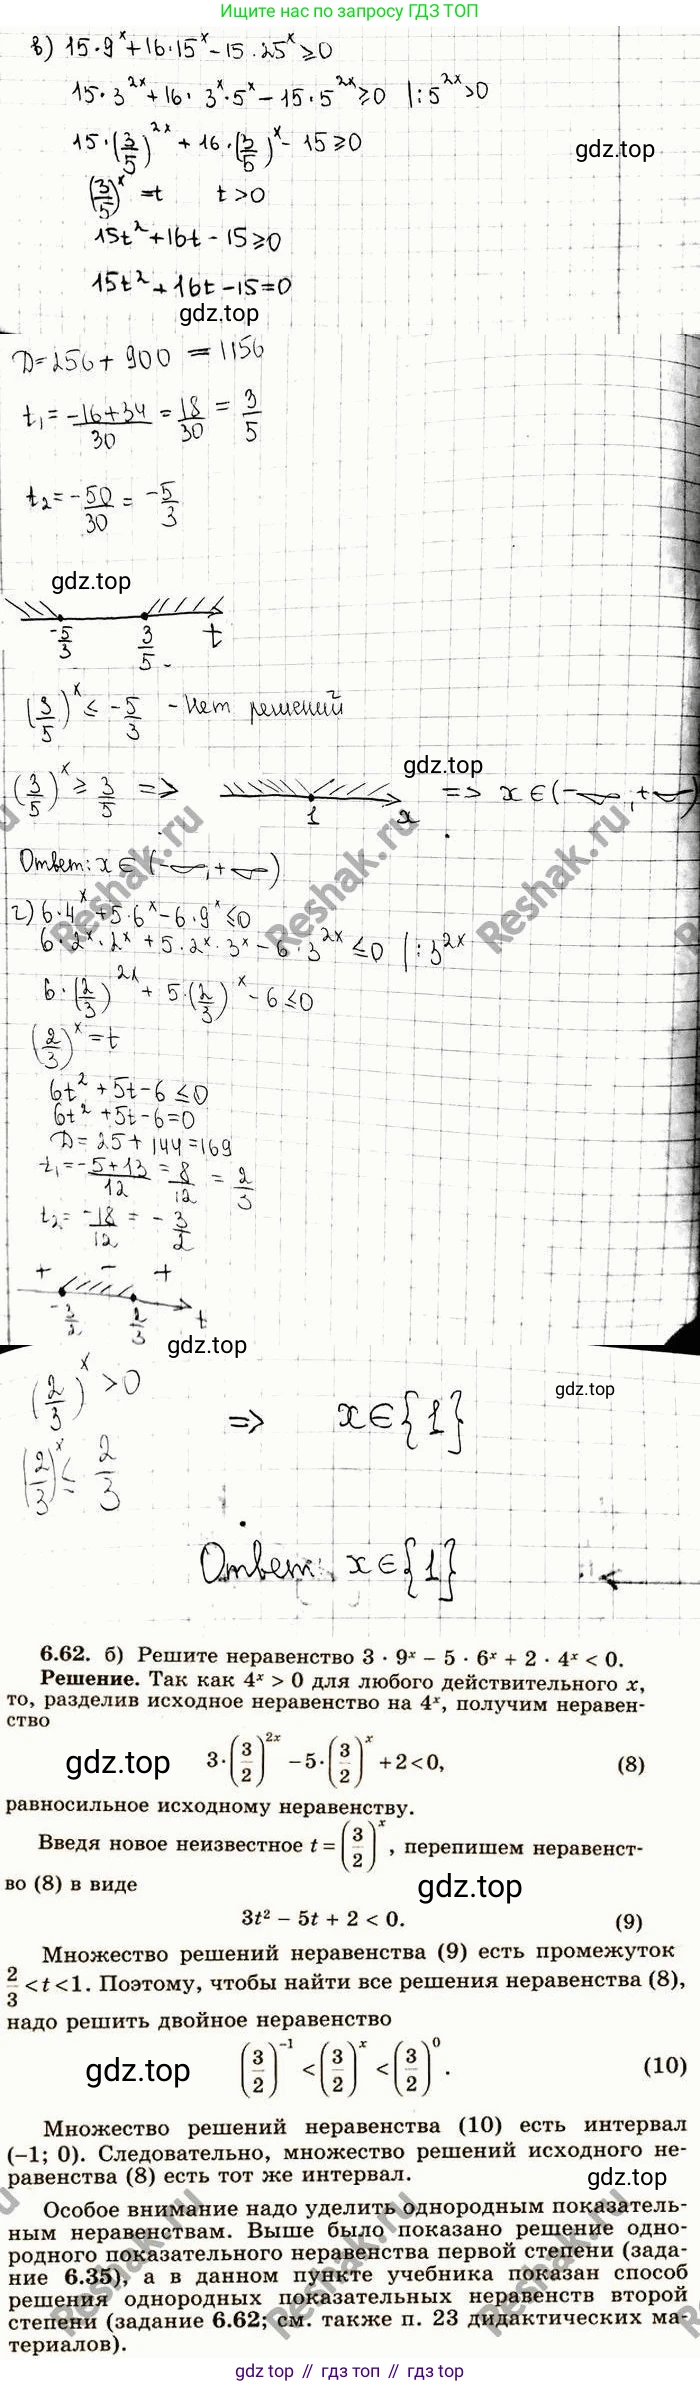 Ищите нас по запросу ГДЗ ТОП
в) 15·9^x + 16·15^x - 15·25^x ≥ 0
15·3^2x + 16·3^x·5^x - 15·5^2x ≥ 0 |:5^2x > 0
15·(3/5)^2x + 16·(3/5)^x - 15 ≥ 0
gdz.top
(3/5)^x = t t > 0
15t² + 16t - 15 ≥ 0
15t² + 16t - 15 = 0
gdz.top
D = 256 + 900 = 1156
t₁ = -16+34/30 = 18/30 = 3/5
t₂ = -50/30 = -5/3
gdz.top
-5/3 3/5 t
(3/5)^x ≤ -5/3 - Нет решений
gdz.top
(3/5)^x ≥ 3/5 => 1 x => x ∈ (-∞, +∞)
Ответ: x ∈ (-∞, +∞)
Reshak.ru Reshak.ru Reshak.ru
г) 6·4^x + 5·6^x - 6·9^x ≤ 0
6·2^x·2^x + 5·2^x·3^x - 6·3^2x ≤ 0 |:3^2x
6·(2/3)^2x + 5·(2/3)^x - 6 ≤ 0
(2/3)^x = t
6t² + 5t - 6 ≤ 0
6t² + 5t - 6 = 0
D = 25 + 144 = 169
t₁ = -5+13/12 = 8/12 = 2/3
t₂ = -18/12 = -3/2
+ - +
-3/2 2/3 t
gdz.top
(2/3)^x > 0
gdz.top
=> x ∈ {1}
(2/3)^x ≤ 2/3
Ответ: x ∈ {1}
6.62. б) Решите неравенство 3 · 9^x – 5 · 6^x + 2 · 4^x < 0.
Решение. Так как 4^x > 0 для любого действительного x,
то, разделив исходное неравенство на 4^x, получим неравен-
ство
gdz.top 3·(3/2)^2x – 5·(3/2)^x + 2 < 0, (8)
равносильное исходному неравенству.
Введя новое неизвестное t = (3/2)^x, перепишем неравенст-
во (8) в виде
gdz.top
3t² – 5t + 2 < 0. (9)
Множество решений неравенства (9) есть промежуток
2/3 < t < 1. Поэтому, чтобы найти все решения неравенства (8),
надо решить двойное неравенство
gdz.top (3/2)^–1 < (3/2)^x < (3/2)^0. (10)
Множество решений неравенства (10) есть интервал
(–1; 0). Следовательно, множество решений исходного не-
равенства (8) есть тот же интервал.
gdz.top
Особое внимание надо уделить однородным показатель-
ным неравенствам. Выше было показано решение одно-
родного показательного неравенства первой степени (зада-
ние 6.35), а в данном пункте учебника показан способ
решения однородных показательных неравенств второй
степени (задание 6.62; см. также п. 23 дидактических ма-
териалов).
Reshak.ru Reshak.ru Reshak.ru
gdz.top // гдз топ // гдз.топ